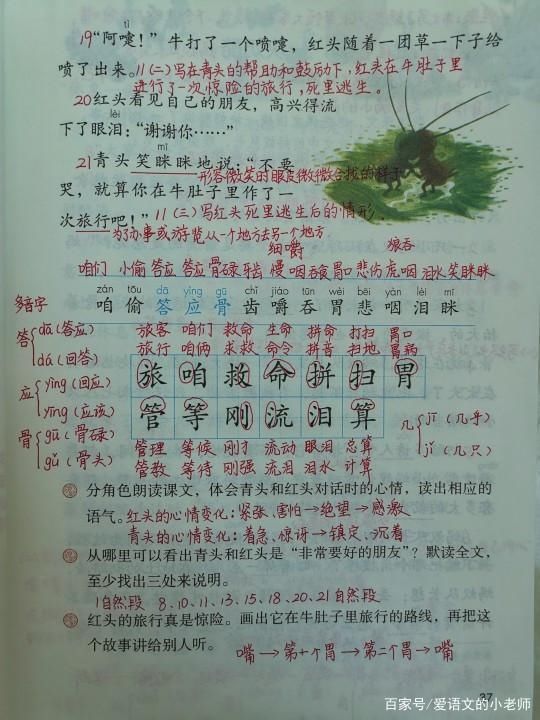 tì
19“阿嚏！”牛打了一个喷嚏，红头随着一团草一下子给
喷了出来。11(二)写在青头的帮助和鼓励下,红头在牛肚子里
进行了一次惊险的旅行,死里逃生。
20红头看见自己的朋友，高兴得流
lèi
下了眼泪：“谢谢你……”
mī
21青头笑眯眯地说：“不要
形容微笑的眼皮微微合拢的样子
哭，就算你在牛肚子里作了一
次旅行吧！”11(三)写红头死里逃生后的情形.
为了办事或游览从一个地方去另一个地方.
细嚼 狼吞
咱们 小偷 答应 答应 骨碌 牙齿 慢咽 吞食 胃口 悲伤 虎咽 泪水 笑眯眯
zán tōu dā yìng gū chǐ jiáo tūn wèi bēi yàn lèi mī
多音字 咱 偷 答 应 骨 齿 嚼 吞 胃 悲 咽 泪 眯
答 dā (答应) 旅客 咱们 救命 生命 拼命 打扫 胃口
dá (回答) 旅行 咱俩 求救 命令 拼音 扫地 胃病
应 yìng (回应) 旅 咱 救 命 拼 扫 胃
yīng (应该) 管 等 刚 流 泪 算
骨 gū (骨碌) 管理 等候 刚才 流动 眼泪 总算
gǔ (骨头) 管教 等待 刚强 流泪 泪水 计算
几 jī (几乎)
jǐ (几只)
分角色朗读课文，体会青头和红头对话时的心情，读出相应的
语气。红头的心情变化:紧张、害怕→绝望→感激
青头的心情变化:着急、惊讶→镇定、沉着
从哪里可以看出青头和红头是“非常要好的朋友”？默读全文，
至少找出三处来说明。
1自然段 8、10、11、13、15、18、20、21自然段
红头的旅行真是惊险。画出它在牛肚子里旅行的路线，再把这
个故事讲给别人听。
嘴→第一个胃→第二个胃→嘴
37
百家号/爱语文的小老师